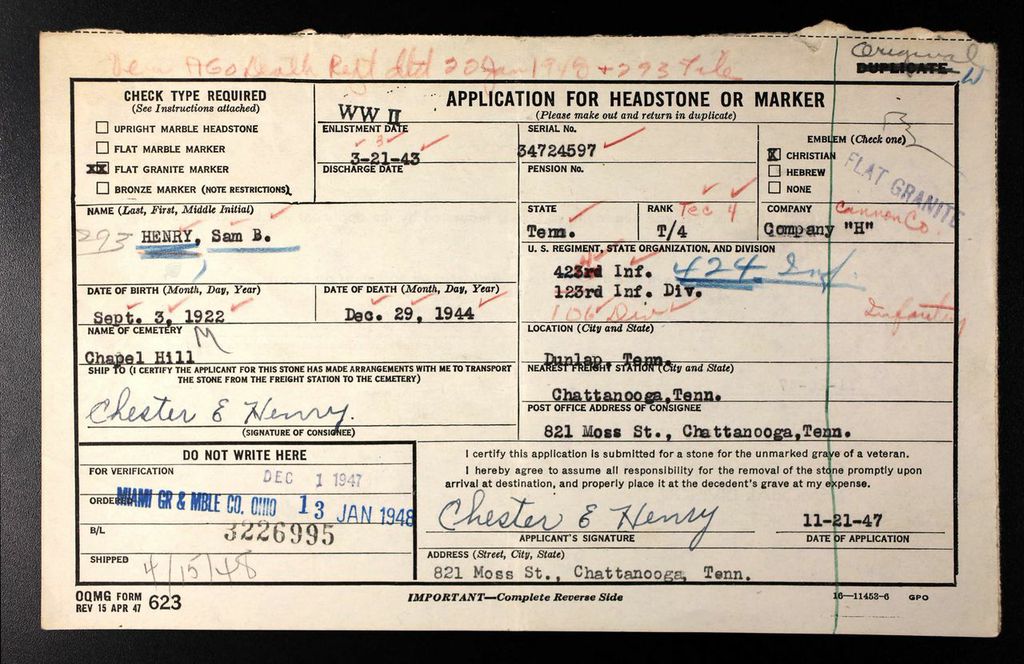 Death Rept dtd 20 Jan 1948 + 293 File
Original
DUPLICATE
CHECK TYPE REQUIRED
(See Instructions attached)
UPRIGHT MARBLE HEADSTONE
FLAT MARBLE MARKER
XX FLAT GRANITE MARKER
BRONZE MARKER (NOTE RESTRICTIONS)
WW II
APPLICATION FOR HEADSTONE OR MARKER
(Please make out and return in duplicate)
ENLISTMENT DATE
3
3-21-43
DISCHARGE DATE
SERIAL No.
34724597
PENSION No.
EMBLEM (Check one)
X CHRISTIAN
HEBREW
NONE
FLAT GRANITE
NAME (Last, First, Middle Initial)
293 HENRY, Sam B.
STATE
Tenn.
RANK Tec 4
T/4
COMPANY Cannon Co.
Company "H"
U. S. REGIMENT, STATE ORGANIZATION, AND DIVISION
423rd Inf. 424 Inf.
123rd Inf. Div.
106 Div
Infantry
DATE OF BIRTH (Month, Day, Year)
Sept. 3, 1922
DATE OF DEATH (Month, Day, Year)
Dec. 29, 1944
NAME OF CEMETERY M
Chapel Hill
LOCATION (City and State)
Dunlap, Tenn.
SHIP TO (I CERTIFY THE APPLICANT FOR THIS STONE HAS MADE ARRANGEMENTS WITH ME TO TRANSPORT
THE STONE FROM THE FREIGHT STATION TO THE CEMETERY)
Chester E Henry.
(SIGNATURE OF CONSIGNEE)
NEAREST FREIGHT STATION (City and State)
Chattanooga, Tenn.
POST OFFICE ADDRESS OF CONSIGNEE
821 Moss St., Chattanooga, Tenn.
DO NOT WRITE HERE
FOR VERIFICATION
DEC 1 1947
ORDERED
MIAMI GR & MBLE CO. OHIO 13 JAN 1948
B/L
3226995
SHIPPED
4/15/48
I certify this application is submitted for a stone for the unmarked grave of a veteran.
I hereby agree to assume all responsibility for the removal of the stone promptly upon
arrival at destination, and properly place it at the decedent's grave at my expense.
Chester E Henry
APPLICANT'S SIGNATURE
11-21-47
DATE OF APPLICATION
ADDRESS (Street, City, State)
821 Moss St., Chattanooga, Tenn.
OQMG FORM
REV 15 APR 47 623
IMPORTANT—Complete Reverse Side
16—11453-6 GPO